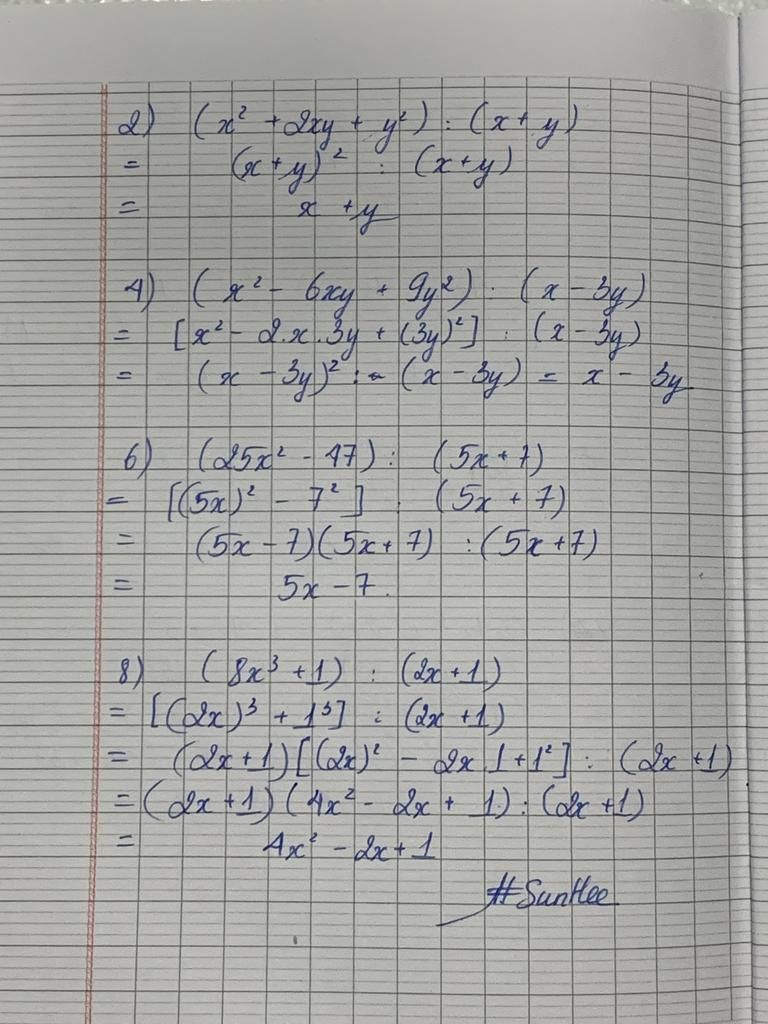 2) (x² + 2xy + y²) : (x + y)
= (x+y)² : (x+y)
= x + y
4) (x² - 6xy + 9y²) : (x - 3y)
= [x² - 2.x.3y + (3y)²] : (x - 3y)
= (x - 3y)² : (x - 3y) = x - 3y
6) (25x² - 47) : (5x + 7)
= [(5x)² - 7²] : (5x + 7)
= (5x - 7)(5x + 7) : (5x + 7)
= 5x - 7.
8) (8x³ + 1) : (2x + 1)
= [(2x)³ + 1³] : (2x + 1)
= (2x+1)[(2x)² - 2x.1 + 1²] : (2x + 1)
= (2x+1)(4x² - 2x + 1) : (2x + 1)
= 4x² - 2x + 1
#SunHee